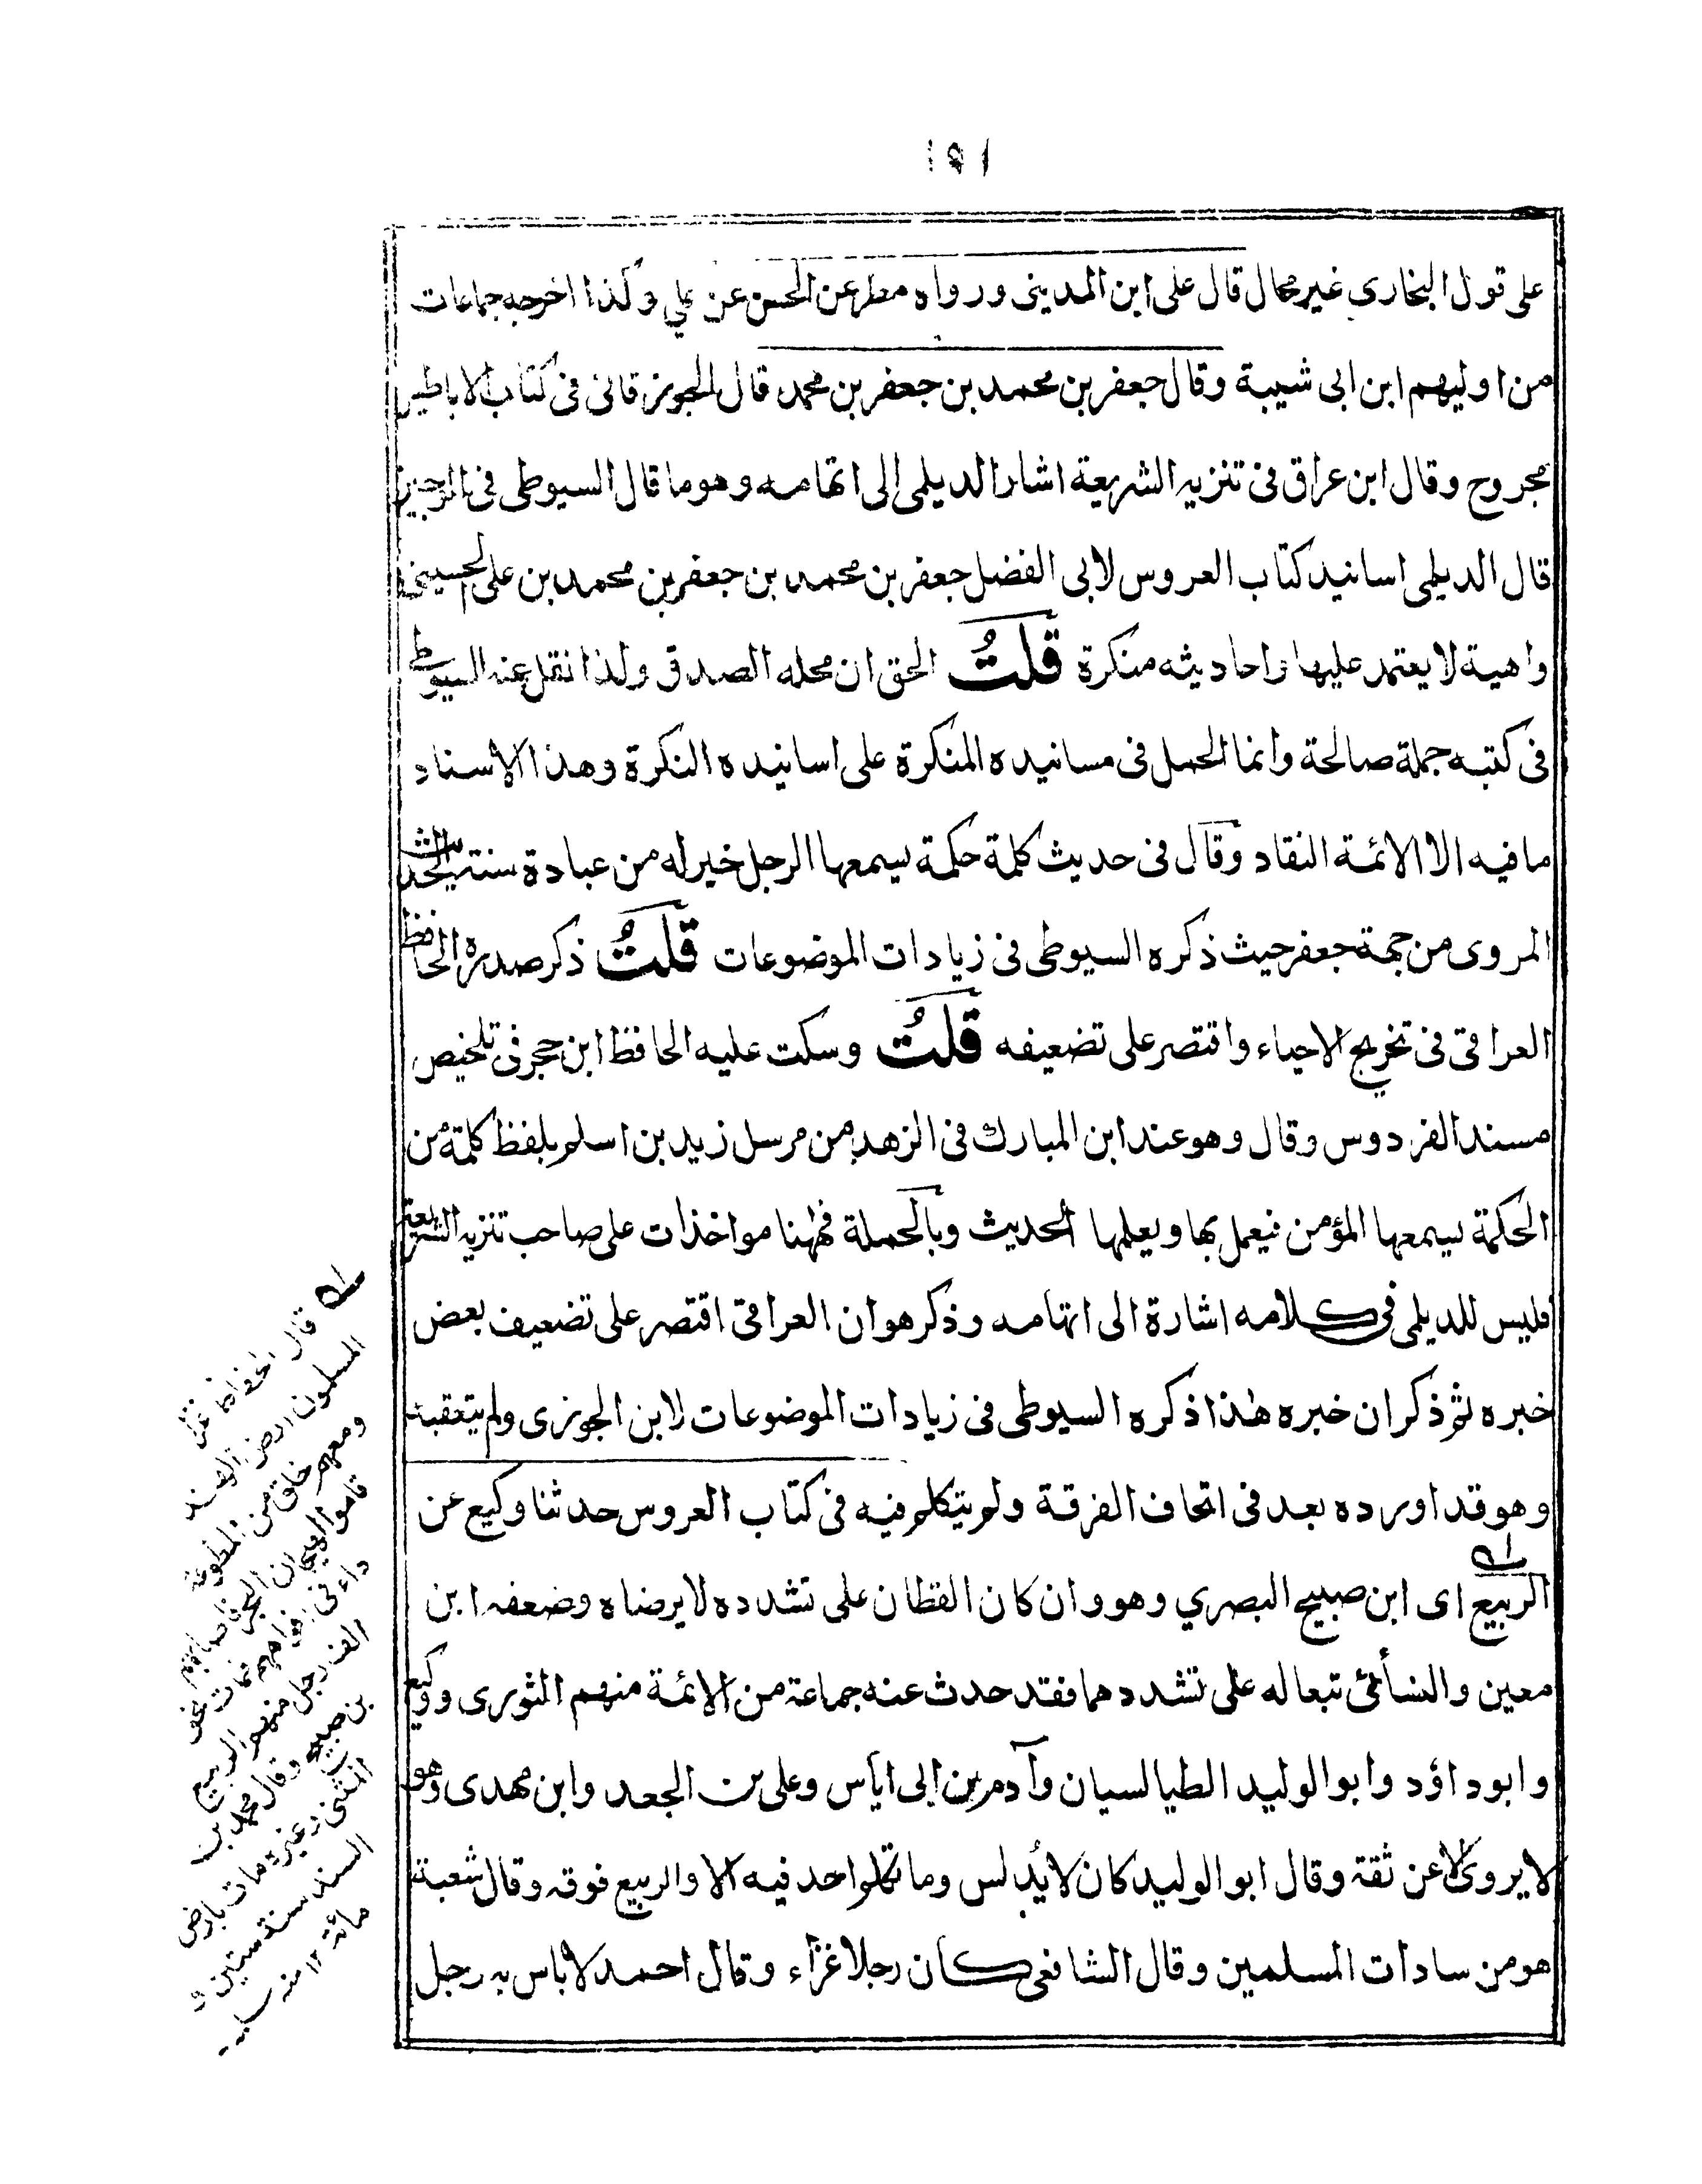 ١٥١
على قول البخارى غير محال قال على ابن المدينى ورواه مطر عن الحسن عن على وكذا اخرجه جماعات
من اوليهم ابن ابى شيبة وقال جعفر بن محمد بن جعفر بن محمد قال الجوزقانى فى كتاب الاباطيل
مجروح وقال ابن عراق فى تنزيه الشريعة اشار الديلمى الى اتهامه وهو ما قال السيوطى فى الوجيز
قال الديلمى اسانيد كتاب العروس لابى الفضل جعفر بن محمد بن جعفر بن محمد بن على الحسينى
واهية لا يعتمد عليها واحاديثه منكرة قلتُ الحق ان محله الصدق ولذا نقل عنه السيوطى
فى كتبه جملة صالحة وانما الحمل فى مسانيده المنكرة على اسانيده النكرة وهذا الاسناد
ما فيه الا الائمة النقاد وقال فى حديث كلمة حكمة يسمعها الرجل خير له من عبادة سنة الحديث
المروى من جهة جعفر حيث ذكره السيوطى فى زيادات الموضوعات قلتُ ذكر صدره الحافظ
العراقى فى تخريج الاحياء واقتصر على تضعيفه قلتُ وسكت عليه الحافظ ابن حجر فى تلخيص
مسند الفردوس وقال وهو عند ابن المبارك فى الزهد من مرسل زيد بن اسلم بلفظ كلمة من
الحكمة يسمعها المؤمن فيعمل بها ويعلمها الحديث وبالجملة فههنا مواخذات على صاحب تنزيه الشريعة
فليس للديلمى فى كلامه اشارة الى اتهامه وذكر هو ان العراقى اقتصر على تضعيف بعض
خبره ثم ذكر ان خبره هذا ذكره السيوطى فى زيادات الموضوعات لابن الجوزى ولم يتعقبه
وهو قد اورده بعد فى اتحاف الفرقة ولم يتكلم فيه فى كتاب العروس حدثنا وكيع عن
الربيع اى ابن صبيح البصري وهو وان كان القطان على تشدده لا يرضاه وضعفه ابن
معين والنسأئى تبعا له على تشددهما فقد حدث عنه جماعة من الائمة منهم الثورى ووكيع
وابو داؤد وابو الوليد الطيالسيان وآدم بن ابى اياس وعلى بن الجعد وابن مهدى وهو
لا يروى الا عن ثقة وقال ابو الوليد كان لا يُدلس وما تكلم احد فيه الا والربيع فوقه وقال شعبة
هو من سادات المسلمين وقال الشافعى كان رجلا غزّاء وقال احمد لا باس به رجل
قال الحفاظ غزا
المسلمون ارض الهند
ومعهم خلق من المطوعة
الف رجل منهم الربيع
بن صبيح وقال محمد بن
المثنى وغيره مات بارض
السند سنة ستين و
مائة ١٢ منه